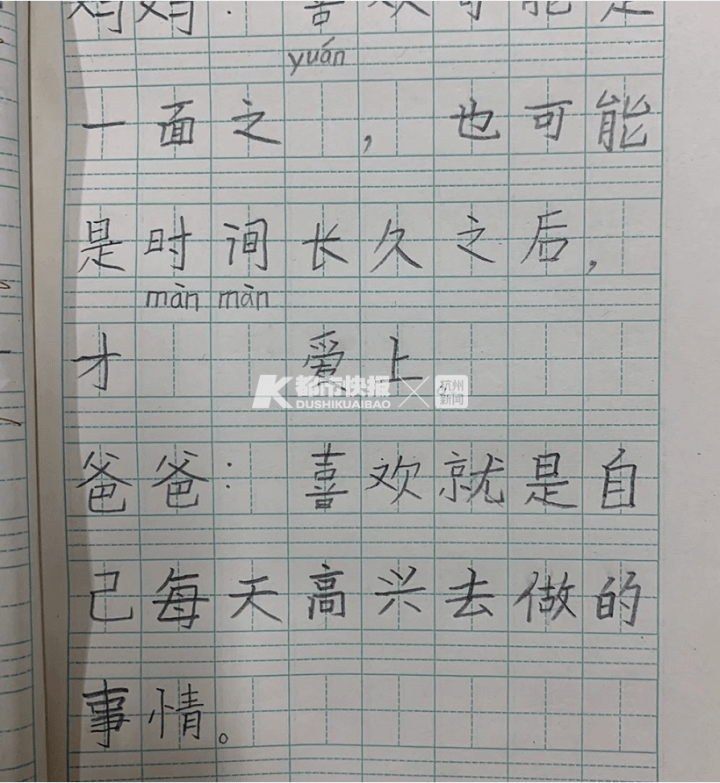 妈妈：喜欢可能是
yuán
一面之 ，也可能
是时间长久之后，
màn màn
才 爱上
都市快报
DUSHIKUAIBAO
杭州
新闻
爸爸：喜欢就是自
己每天高兴去做的
事情。